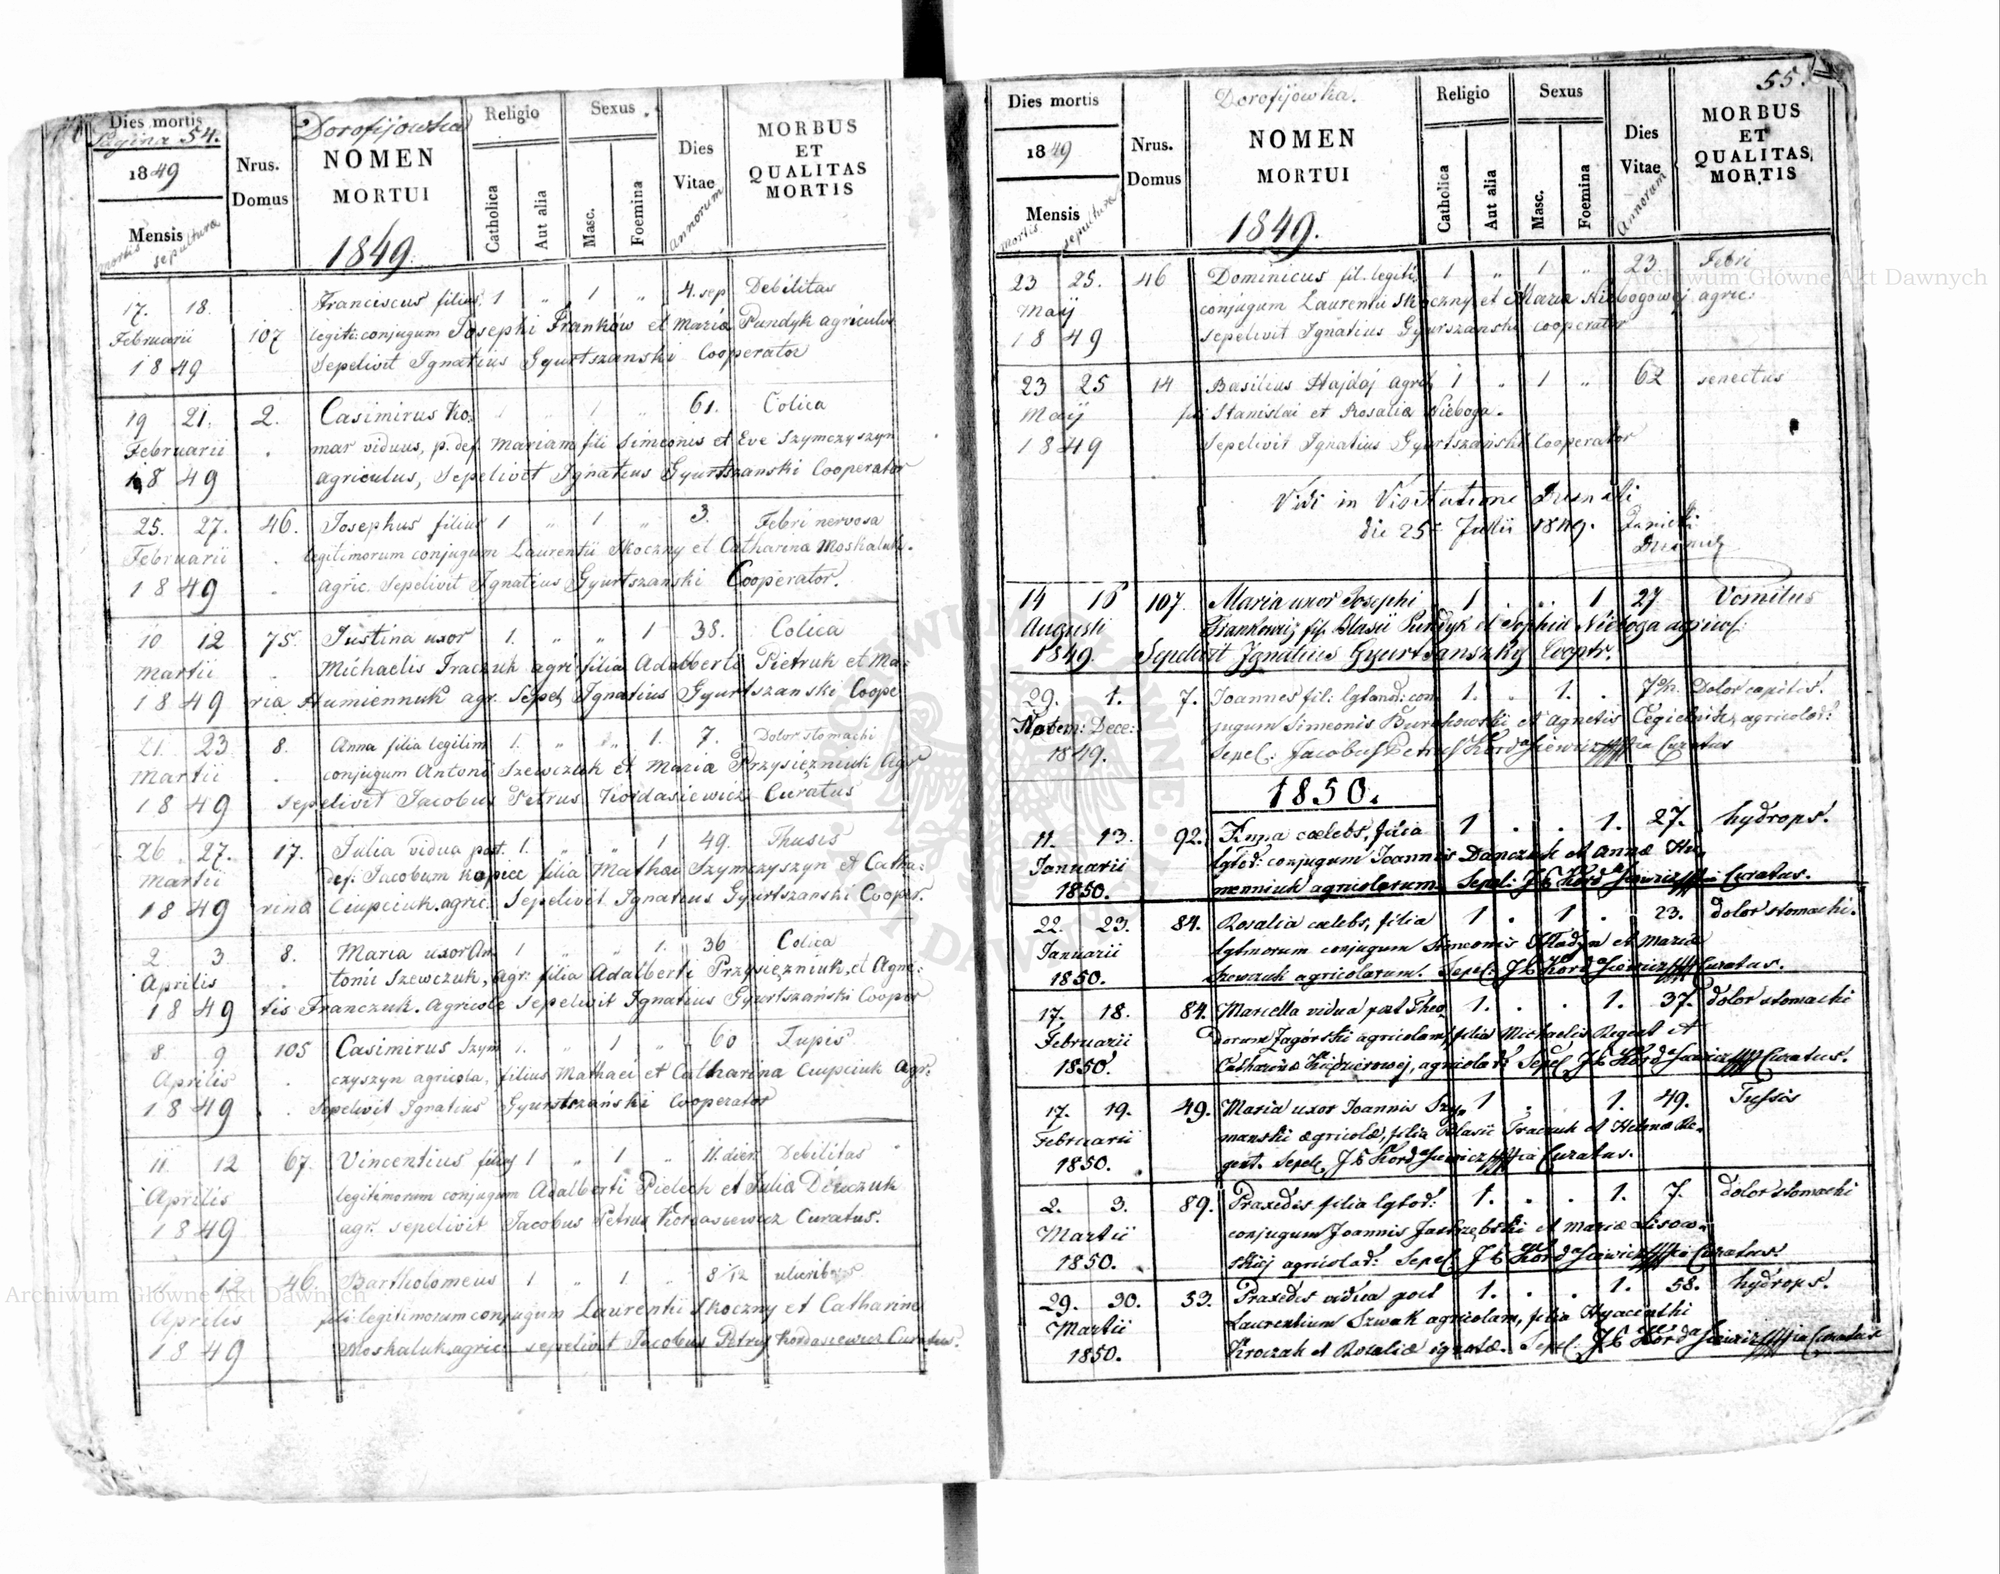 Dies mortis
Pagina 54.
1849
Mensis
mortis sepultura
Nrus. Domus
Dorofijowka
NOMEN
MORTUI
1849.
Religio
Catholica
Aut alia
Sexus
Masc.
Foemina
Dies
Vitae
Annorum
MORBUS
ET
QUALITAS
MORTIS
17. 18. Franciscus filius 1 " 1 " 4. sep Debilitas
Februarii 107 legiti: conjugum Josephi Franków et Maria Pundyk agricolar
1849 Sepelivit Ignatius Gyurtszanski Cooperator
19 21. 2. Casimirus Ko: 1 " 1 " 61. Colica
Februarii mar viduus, p. def. Mariam fili Simeonis et Eve Szymczyszyn
1849 agricolus, Sepelivit Ignatius Gyurtszanski Cooperator
25. 27. 46. Josephus filius 1 " 1 " 3. Febri nervosa
Februarii legitimorum conjugum Laurentii Skoczny et Catharina Moskaluk.
1849 agric. Sepelivit Ignatius Gyurtszanski Cooperator.
10 12 75. Justina uxor 1. " " 1 38. Colica
Martii Michaelis Traczuk agri filia Adalberti Pietruk et Ma:
1849 ria Humienniuk agr. Sepel, Ignatius Gyurtszanski Coope
21. 23 8. Anna filia legitim 1. " " 1. 7. Dolor stomachi
Martii conjugum Antoni Szewczuk et Maria Przysięzniuk Agr
1849 sepelivit Jacobus Petrus Kordasiewicz Curatus
26 27. 17. Julia vidua post. 1. " " 1 49. Thusis
Martii def: Jacobum Kopiec filia Mathai Szymczyszyn et Catha:
1849 rina Ciupciuk. agric. Sepelivit Ignatius Gyurtszanski Cooper.
2 3 8. Maria uxor An: 1 " " 1. 36 Colica
Aprilis tonii Szewczuk, agr: filia Adalberti Przysięzniuk, et Agne:
1849 tis Franczuk. Agricole Sepelivit Ignatius Gyurtszański Cooper
8. 9 105 Casimirus Szym 1. " 1 " 60 Tupis
Aprilis czyszyn agricola, filius Mathaei et Catharina Ciupciuk Agr:
1849 Sepelivit Ignatius Gyurtszański Cooperator
11. 12 67. Vincentius filius 1 " 1 " 11. dier Debilitas
Aprilis legitimorum conjugum Adalberti Pielech et Julia
1849 agr. sepelivit Jacobus Petrus Kordasiewicz Curatus.
12 46. Bartholomeus 1 " 1. " 8/12
Aprilis fili legitimorum conjugum Laurentii Skoczny et Catharine
1849 Moskaluk agric: sepelivit Jacobus Petrus Kordasiewicz Curatus.
55.
Dies mortis
1849
Mensis
mortis sepultura
Nrus.
Domus
Dorofijowka.
NOMEN
MORTUI
1849.
Religio
Catholica
Aut alia
Sexus
Masc.
Foemina
Dies
Vitae
Annorum
MORBUS
ET
QUALITAS
MORTIS
23 25. 46 Dominicus fil. legiti: 1 " 1 " 23 Febri
Maij conjugum Laurentii Skoczny et Maria Niebogowej agric:
1849 sepelivit Ignatius Gyurszanski cooperator
23 25 14 Basilius Hajdaj agric 1 " 1 " 62 senectus
Maij fili Stanislai et Rosalia Nieboga.
1849 Sepelivit Ignatius Gyurtszański Cooperator
Vidi in Visitatione
die 25 Julii 1849.
14 16 107. Maria uxor Josephi 1 . . 1 27 Vomitus
Augusti Frankowij fil. Blasii Pundyk et Sophia Nieboga agricol:
1849. Sepelivit Ignatius Gyurtsanszky Cooptr.
29. 1. 7. Joannes fil: lgtmod: con 1. " 1. . Dolor capitis.
Novem: Dece: jugum Simeonis Burakowski et Agnetis agricolar:
1849. Sepel: Jacobus Petrus Kordasiewicz Curatus
1850.
11. 13. 92. Anna caelebs, filia 1 . . 1. 27. hydrops.
Januarii conjugum Joannis Danczuk et Annae Hu,,
1850. menniuk agricolarum. Sepel: Kordasiewicz Curatus.
22. 23. 84. Rosalia caelebs, filia 1 . 1 . 23. dolor stomachi.
Januarii lgtmorum conjugum Simeonis Hladyn et Mariae
1850. Szewczuk agricolarum. Sepel: Kordasiewicz Curatus.
17. 18. 84. Mariella vidua post Theo 1. . . 1. 37. dolor stomachi
Februarii dorum Zagórski agricolam, filia Michaelis Regent et
1850. Catharinae agricolar: Sepel Kordasiewicz Curatus.
17. 19. 49. Maria uxor Joannis Szy, 1 . . 1. 49. Tussis
Februarii manski agricolae, filia Blasii Traczuk et Helenae Re,,
1850. gent. Sepel, Kordasiewicz Curatus.
2. 3. 89. Praxedis filia 1. . . 1. 7. dolor stomachi
Martii conjugum Joannis Jastrzębski et Mariae Lisow,,
1850. skiej agricolar: Sepel: Kordasiewicz Curatus.
29. 30. 33. Praxedis vidua post 1. . . 1. 58. hydrops.
Martii Laurentium Szwak agricolam, filia Hyacinthi
1850. Kroczak et Rosaliae ignotae. Sepel: Kordasiewicz Curatus
Archiwum Główne Akt Dawnych
Archiwum Główne Akt Dawnych
ARCHIWUM GŁÓWNE AKT DAWNYCH